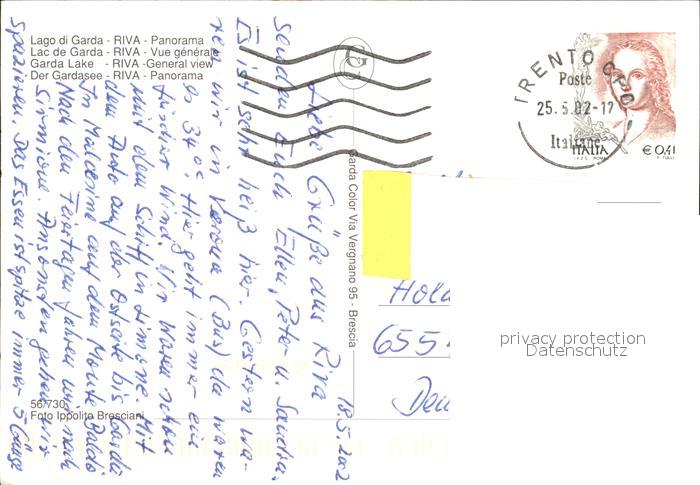 Lago di Garda - RIVA - Panorama
Lac de Garda - RIVA - Vue générale
Garda Lake - RIVA - General view
Der Gardasee - RIVA - Panorama
18.5.2002
Liebe Grüße aus Riva
senden Euch Ellen, Peter u. Sandra.
Es ist sehr heiß hier. Gestern wa-
ren wir in Verona (Bus) da waren
es 34°C. Hier geht immer ein
frischer Wind. Wir waren schon
mit dem Schiff in Limone. Mit
dem Auto auf der Ostseite bis Garda
In Malcesine auf dem Monte Baldo
Nach den Feiertagen fahren wir nach
Sirmione. Ansonsten gehen wir
spazieren. Das Essen ist spitze immer 5 Gänge
56/730
Foto Ippolito Bresciani
G
Garda Color Via Vergnano 95 - Brescia
TRENTO CPO
Poste
25.5.02-17
Italiane
ITALIA
€ 0,41
I.P.Z.S. ROMA
F. TULLI
655
privacy protection
Datenschutz